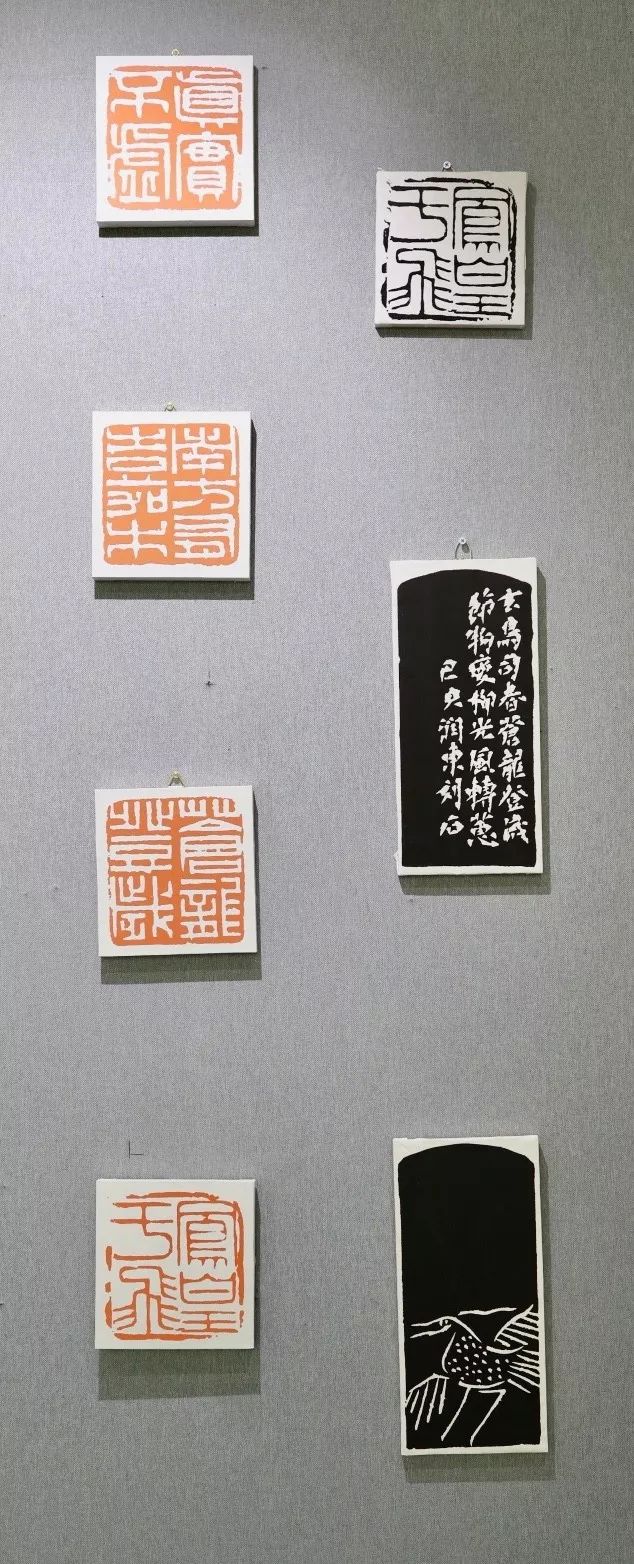 眞實
不虛
南方有
嘉木
蒼龍
登歲
鳳皇
于飛
鳳皇
于飛
玄鳥司春蒼龍登歲
節物變柳光風轉蕙
己亥潤東刻石